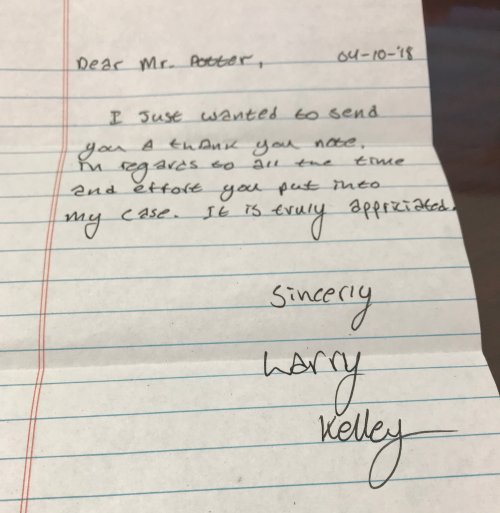 Dear Mr. Potter, 04-10-'18
I Just wanted to send
you a thank you note.
in regards to all the time
and effort you put into
my case. It is truly appriciated.
Sincerly
Larry
Kelley